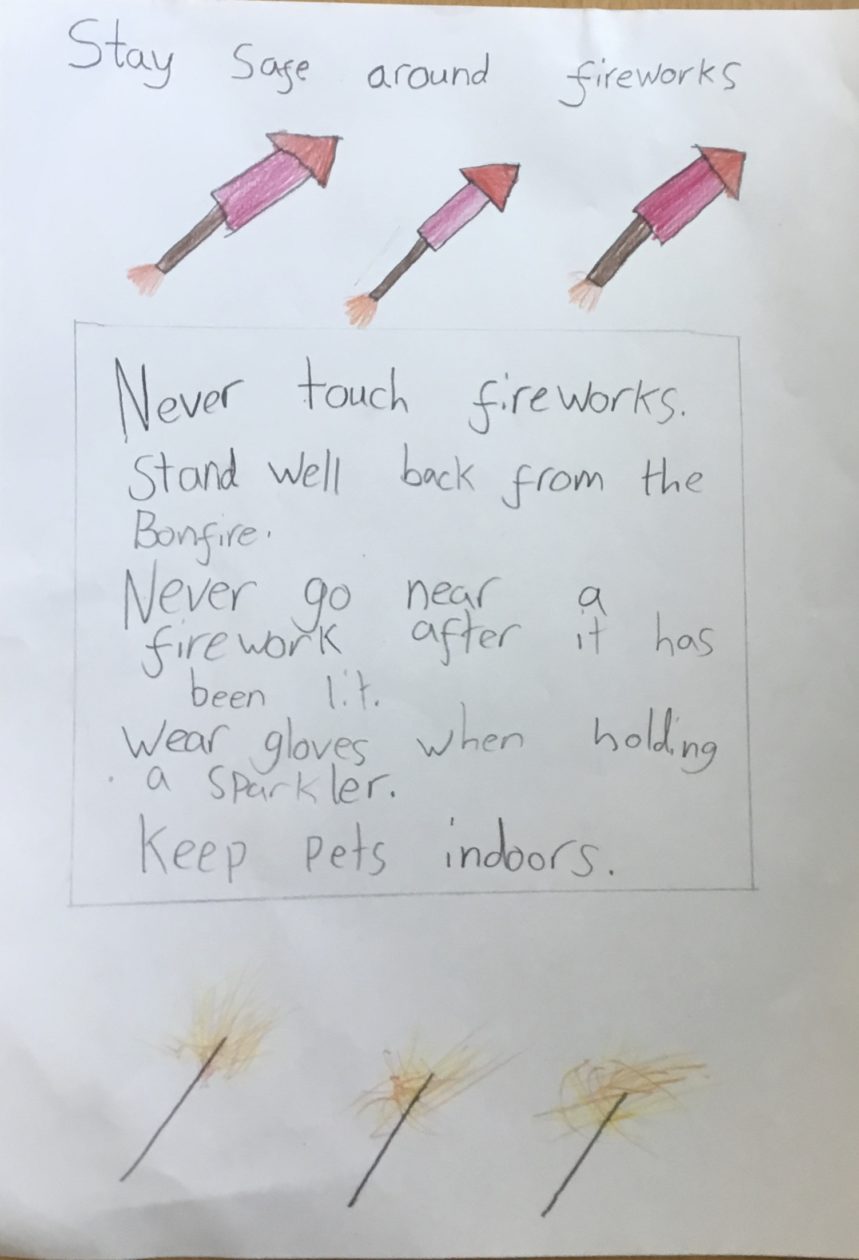 Stay Safe around fireworks
Never touch fireworks.
Stand well back from the
Bonfire.
Never go near a
firework after it has
been lit.
Wear gloves when holding
a sparkler.
Keep pets indoors.